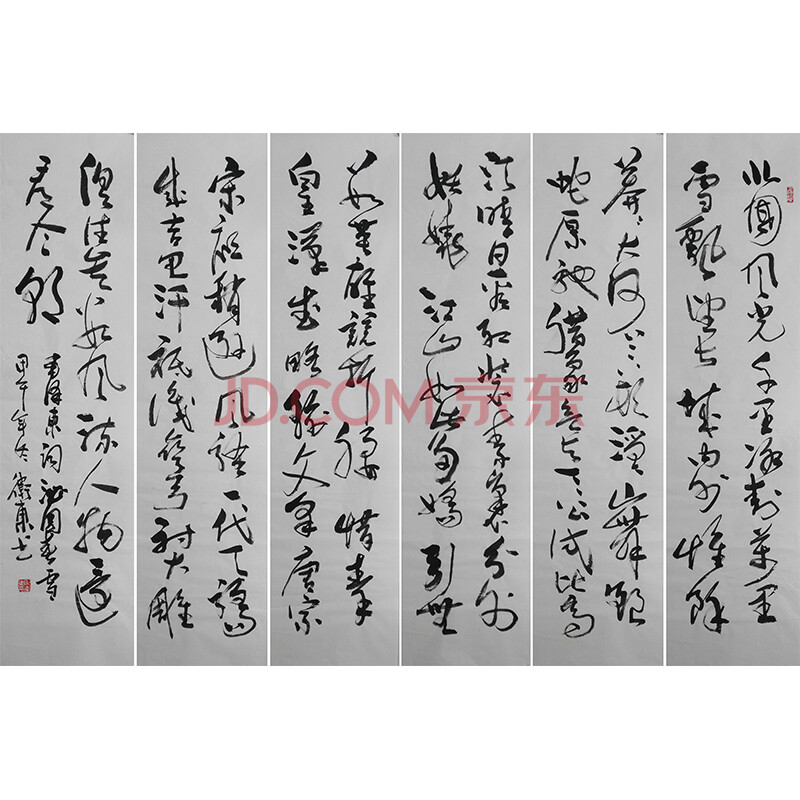 北國风光千里冰封萬里
雪飄望长城内外惟餘
莽莽大河上下頓失滔滔山舞銀
蛇原驰腊象欲与天公试比高
须晴日看红裝素裹分外
妖娆江山如此多嬌引無
数英雄競折腰惜秦
皇漢武略输文采唐宗
宋祖稍逊风骚一代天骄
成吉思汗祇識弯弓射大雕
俱往矣数风流人物還
看今朝
毛泽東词沁園春雪
甲午年冬衛東书
JD.COM 京东